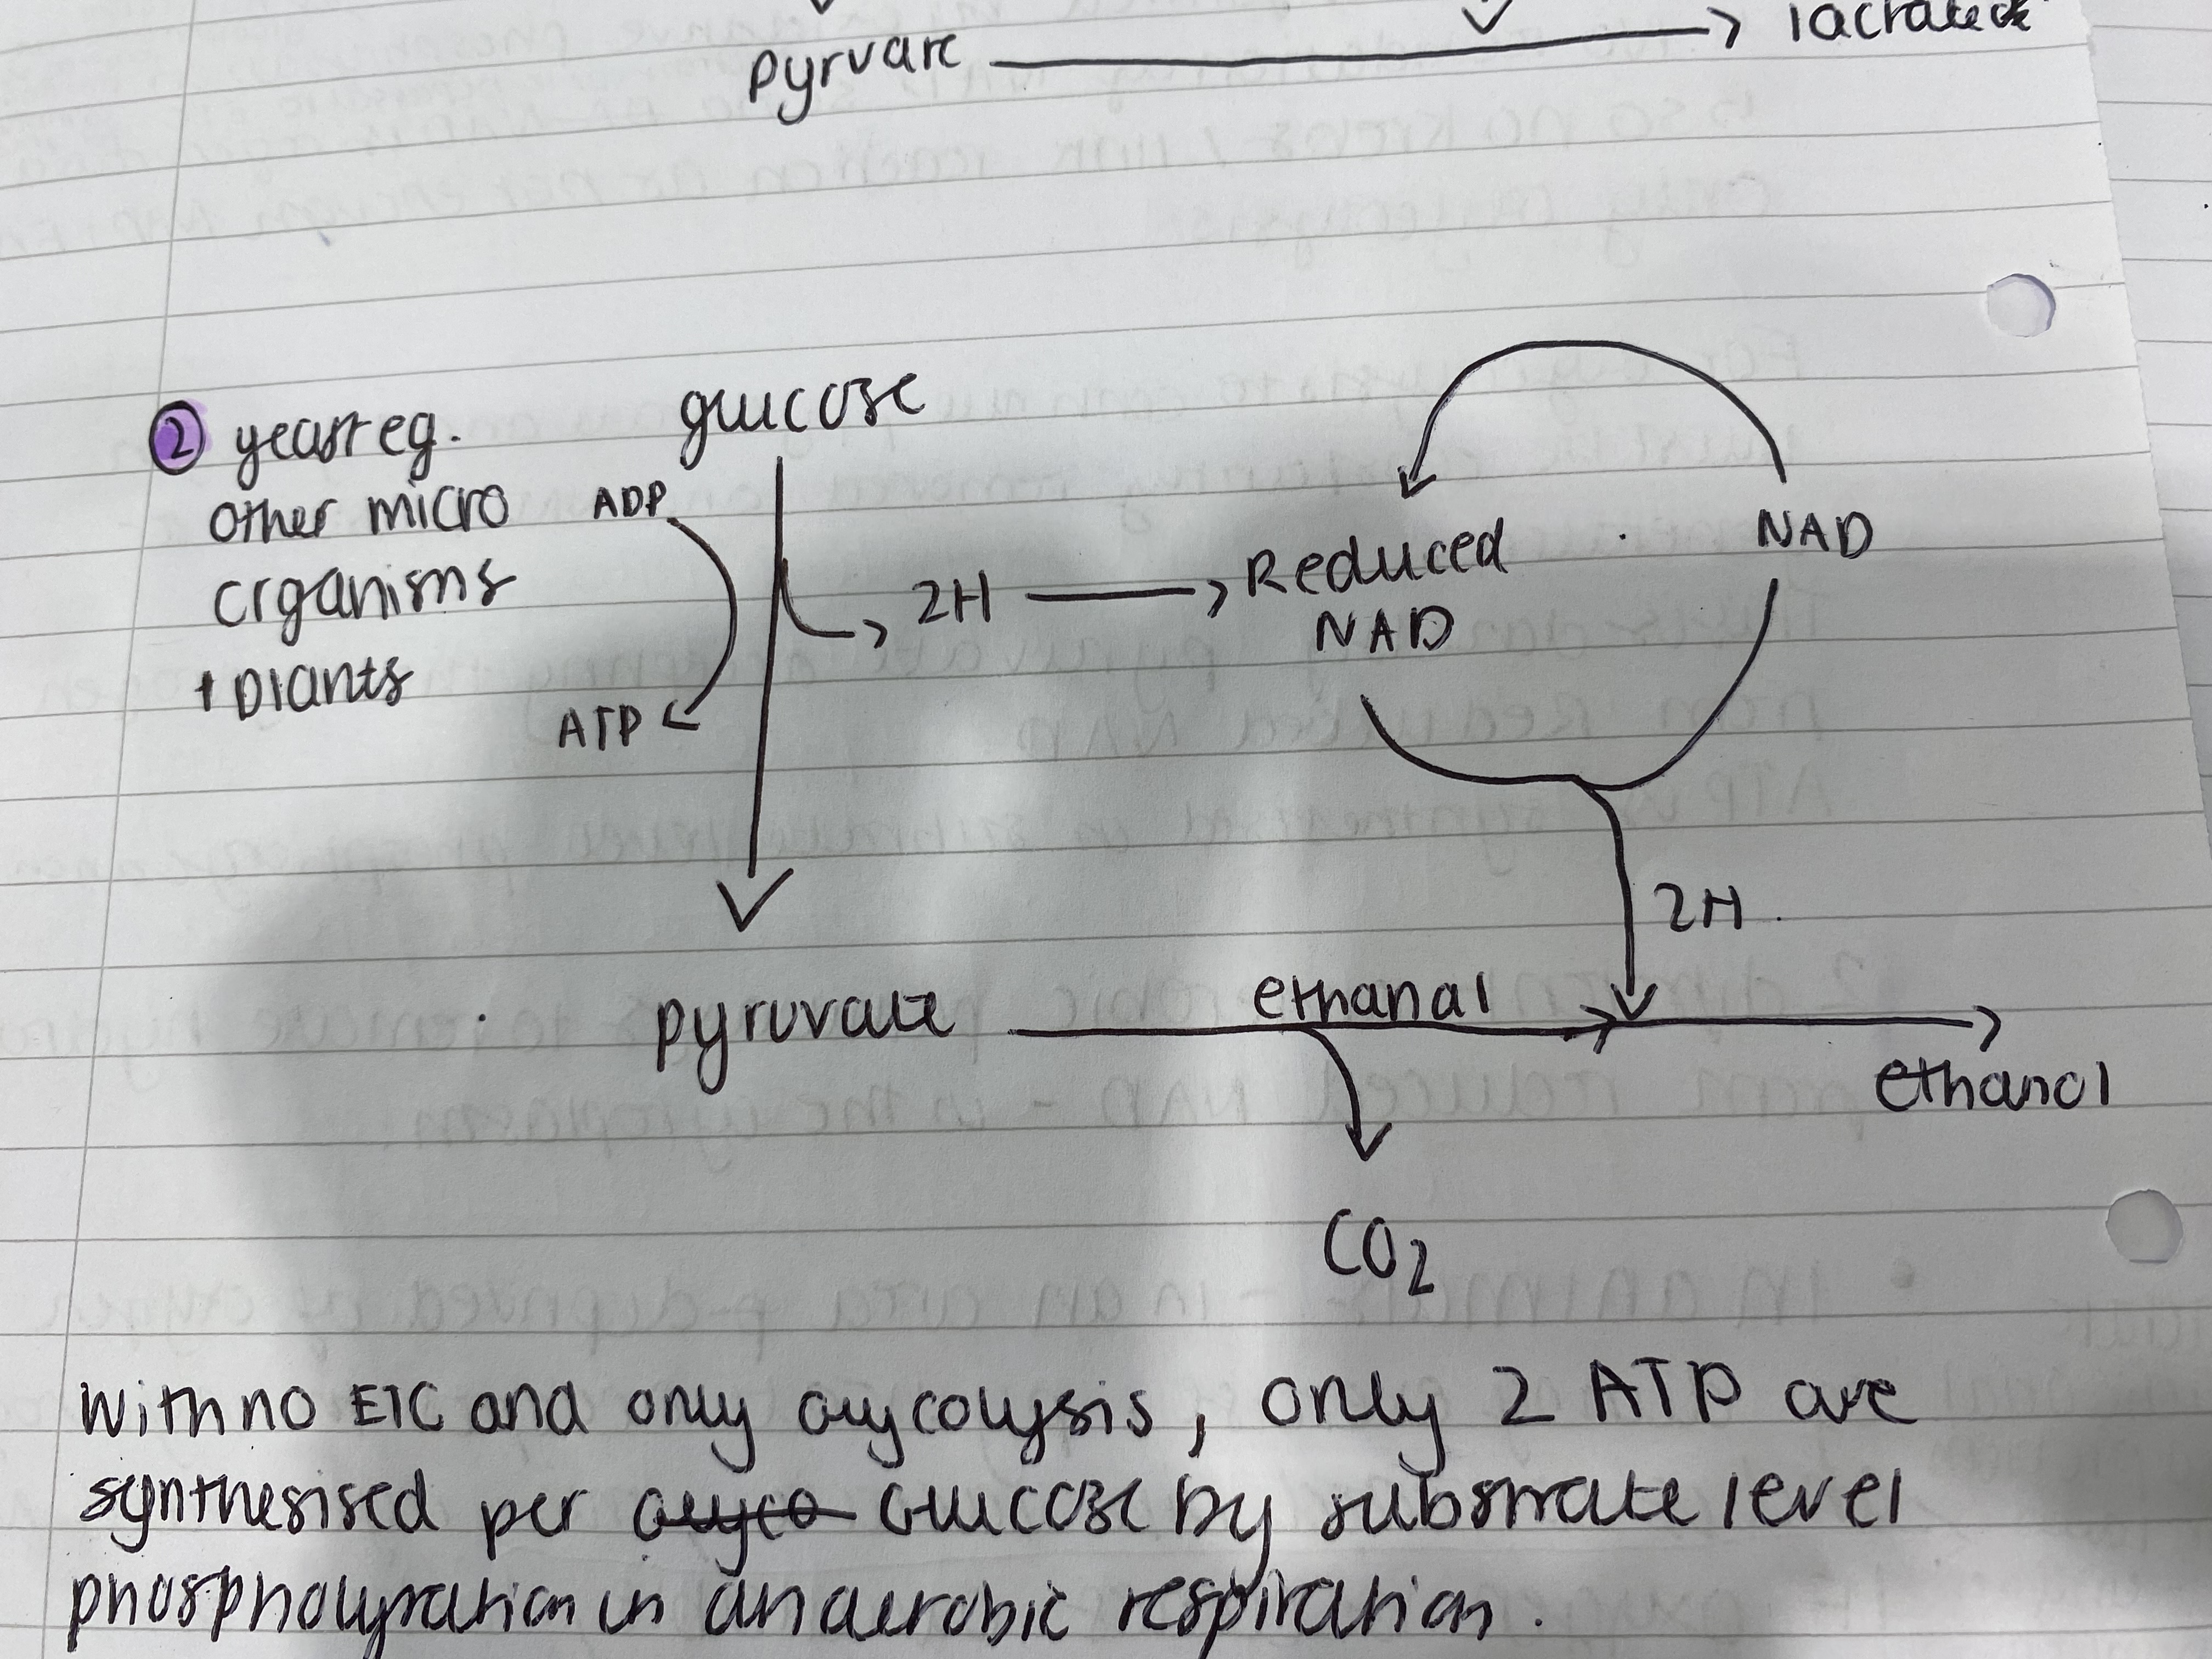 pyrvate → lactate
② yeast eg.
other micro
organisms
+ plants
glucose
ADP
ATP
2H →
Reduced
NAD
NAD
2H
pyruvate
ethanal
ethanol
CO2
With no ETC and only glycolysis, only 2 ATP are
synthesised per glyco glucose by substrate level
phosphorylation in anaerobic respiration.